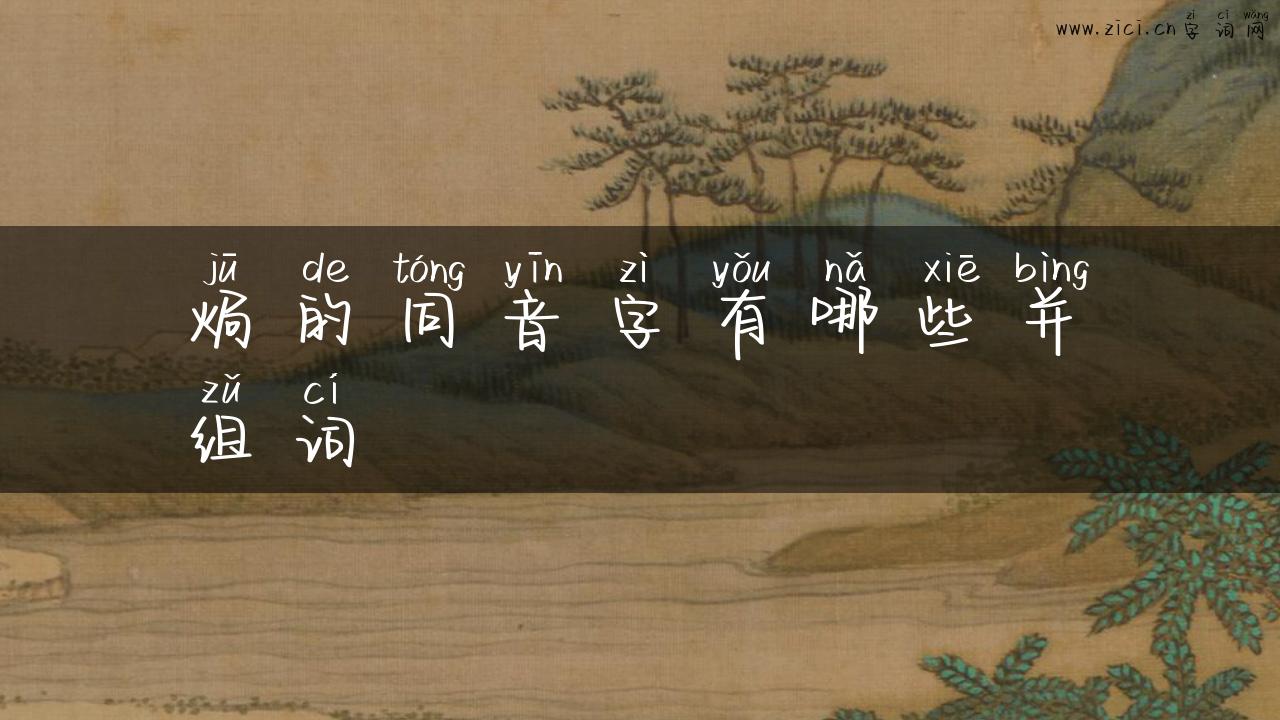 zì cí wǎng
www.zici.cn 字词网
jū de tóng yīn zì yǒu nǎ xiē bìng
焗的同音字有哪些并
zǔ cí
组词